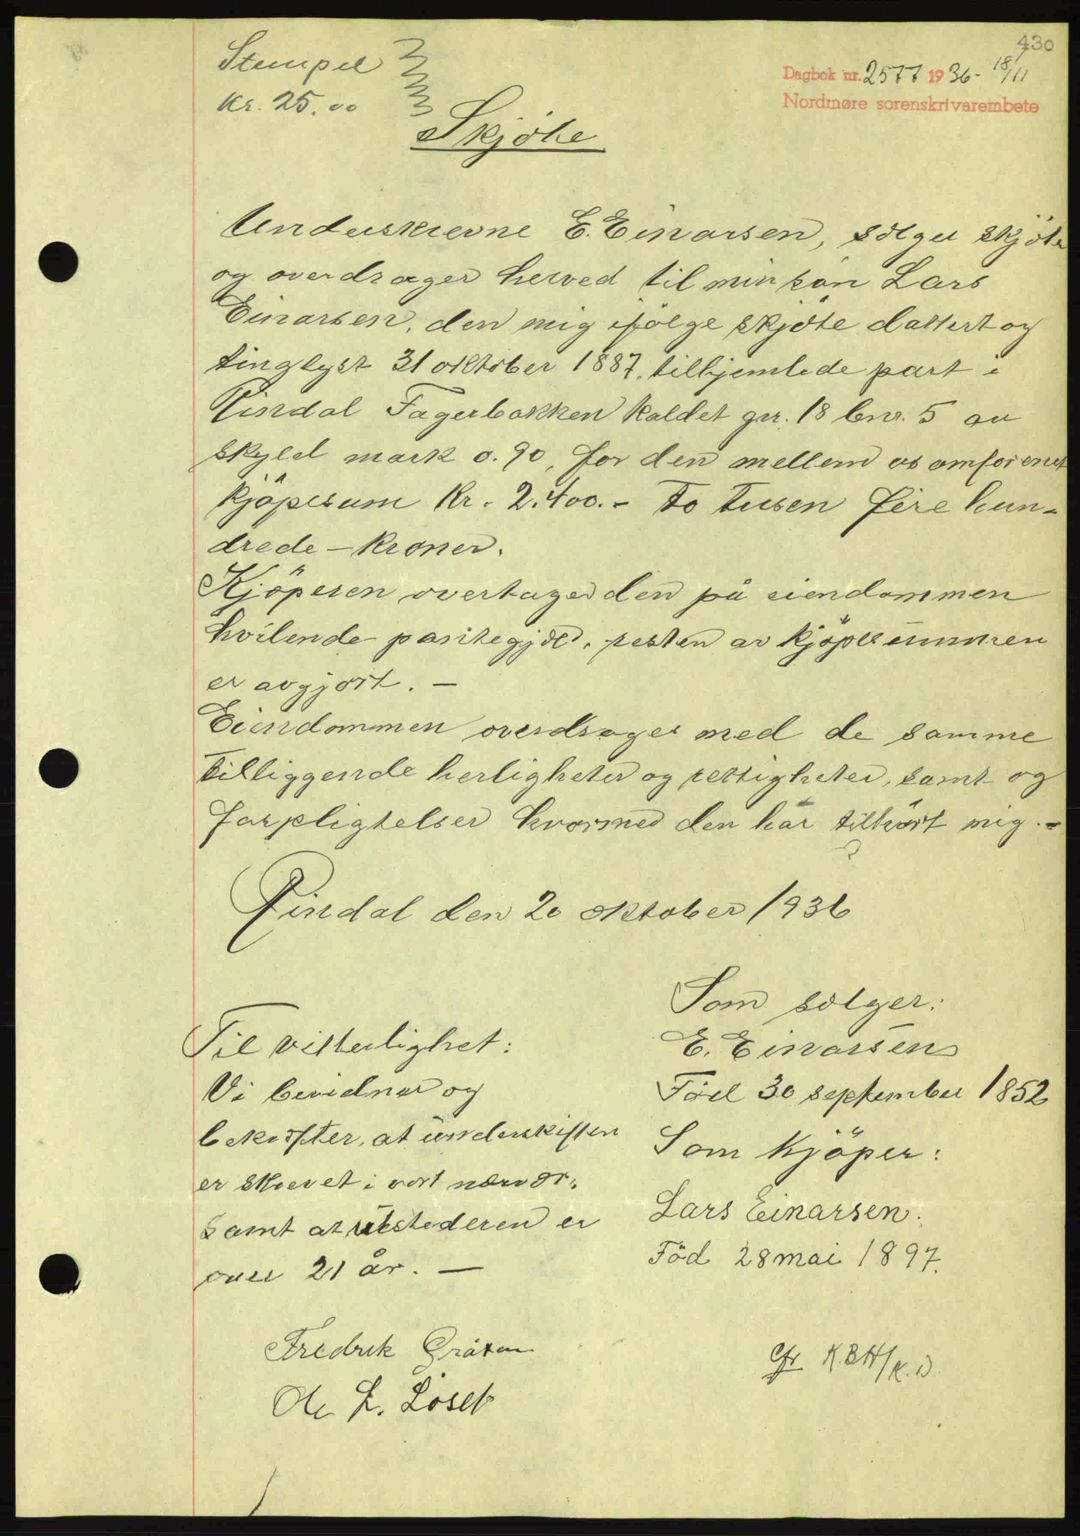 430
Stempel
Kr. 25.00
Dagbok nr. 2577 1936 - 18/11
Nordmøre sorenskrivarembete
Skjöte
Underskrevne E. Einarsen, sælger skjöte
og overdrager herved til min sön Lars
Einarsen, den mig ifölge skjöte dattert og
tinglyst 31 oktober 1887, tilhjemlede part i
Rindal Fagerbakken kaldet gnr. 18 bnr. 5 av
skyld mark 0.90, for den mellem os omforenet
kjöpesum Kr. 2.400.- To tusen fire hun-
drede - kroner.
Kjöperen overtager den på eiendommen
hvilende pantegjeld, resten av kjöpesummen
er avgjort. -
Eiendommen overdrages med de samme
tilliggende herligheter og rettigheter, samt og
forpligtelser hvormed den har tilhört mig. -
Rindal den 20 oktober 1936
Som sælger:
E. Einarsen
Född 30 september 1852
Som Kjöper:
Lars Einarsen.
Föd 28 mai 1897.
Til vitterlighet:
Vi bevidner og
bekræfter, at underskriften
er skrevet i vort nærvær,
samt at utstederen er
over 21 år. -
Fredrik Gråxan
Ole L. Löset
Cfr K.BH/K.D.